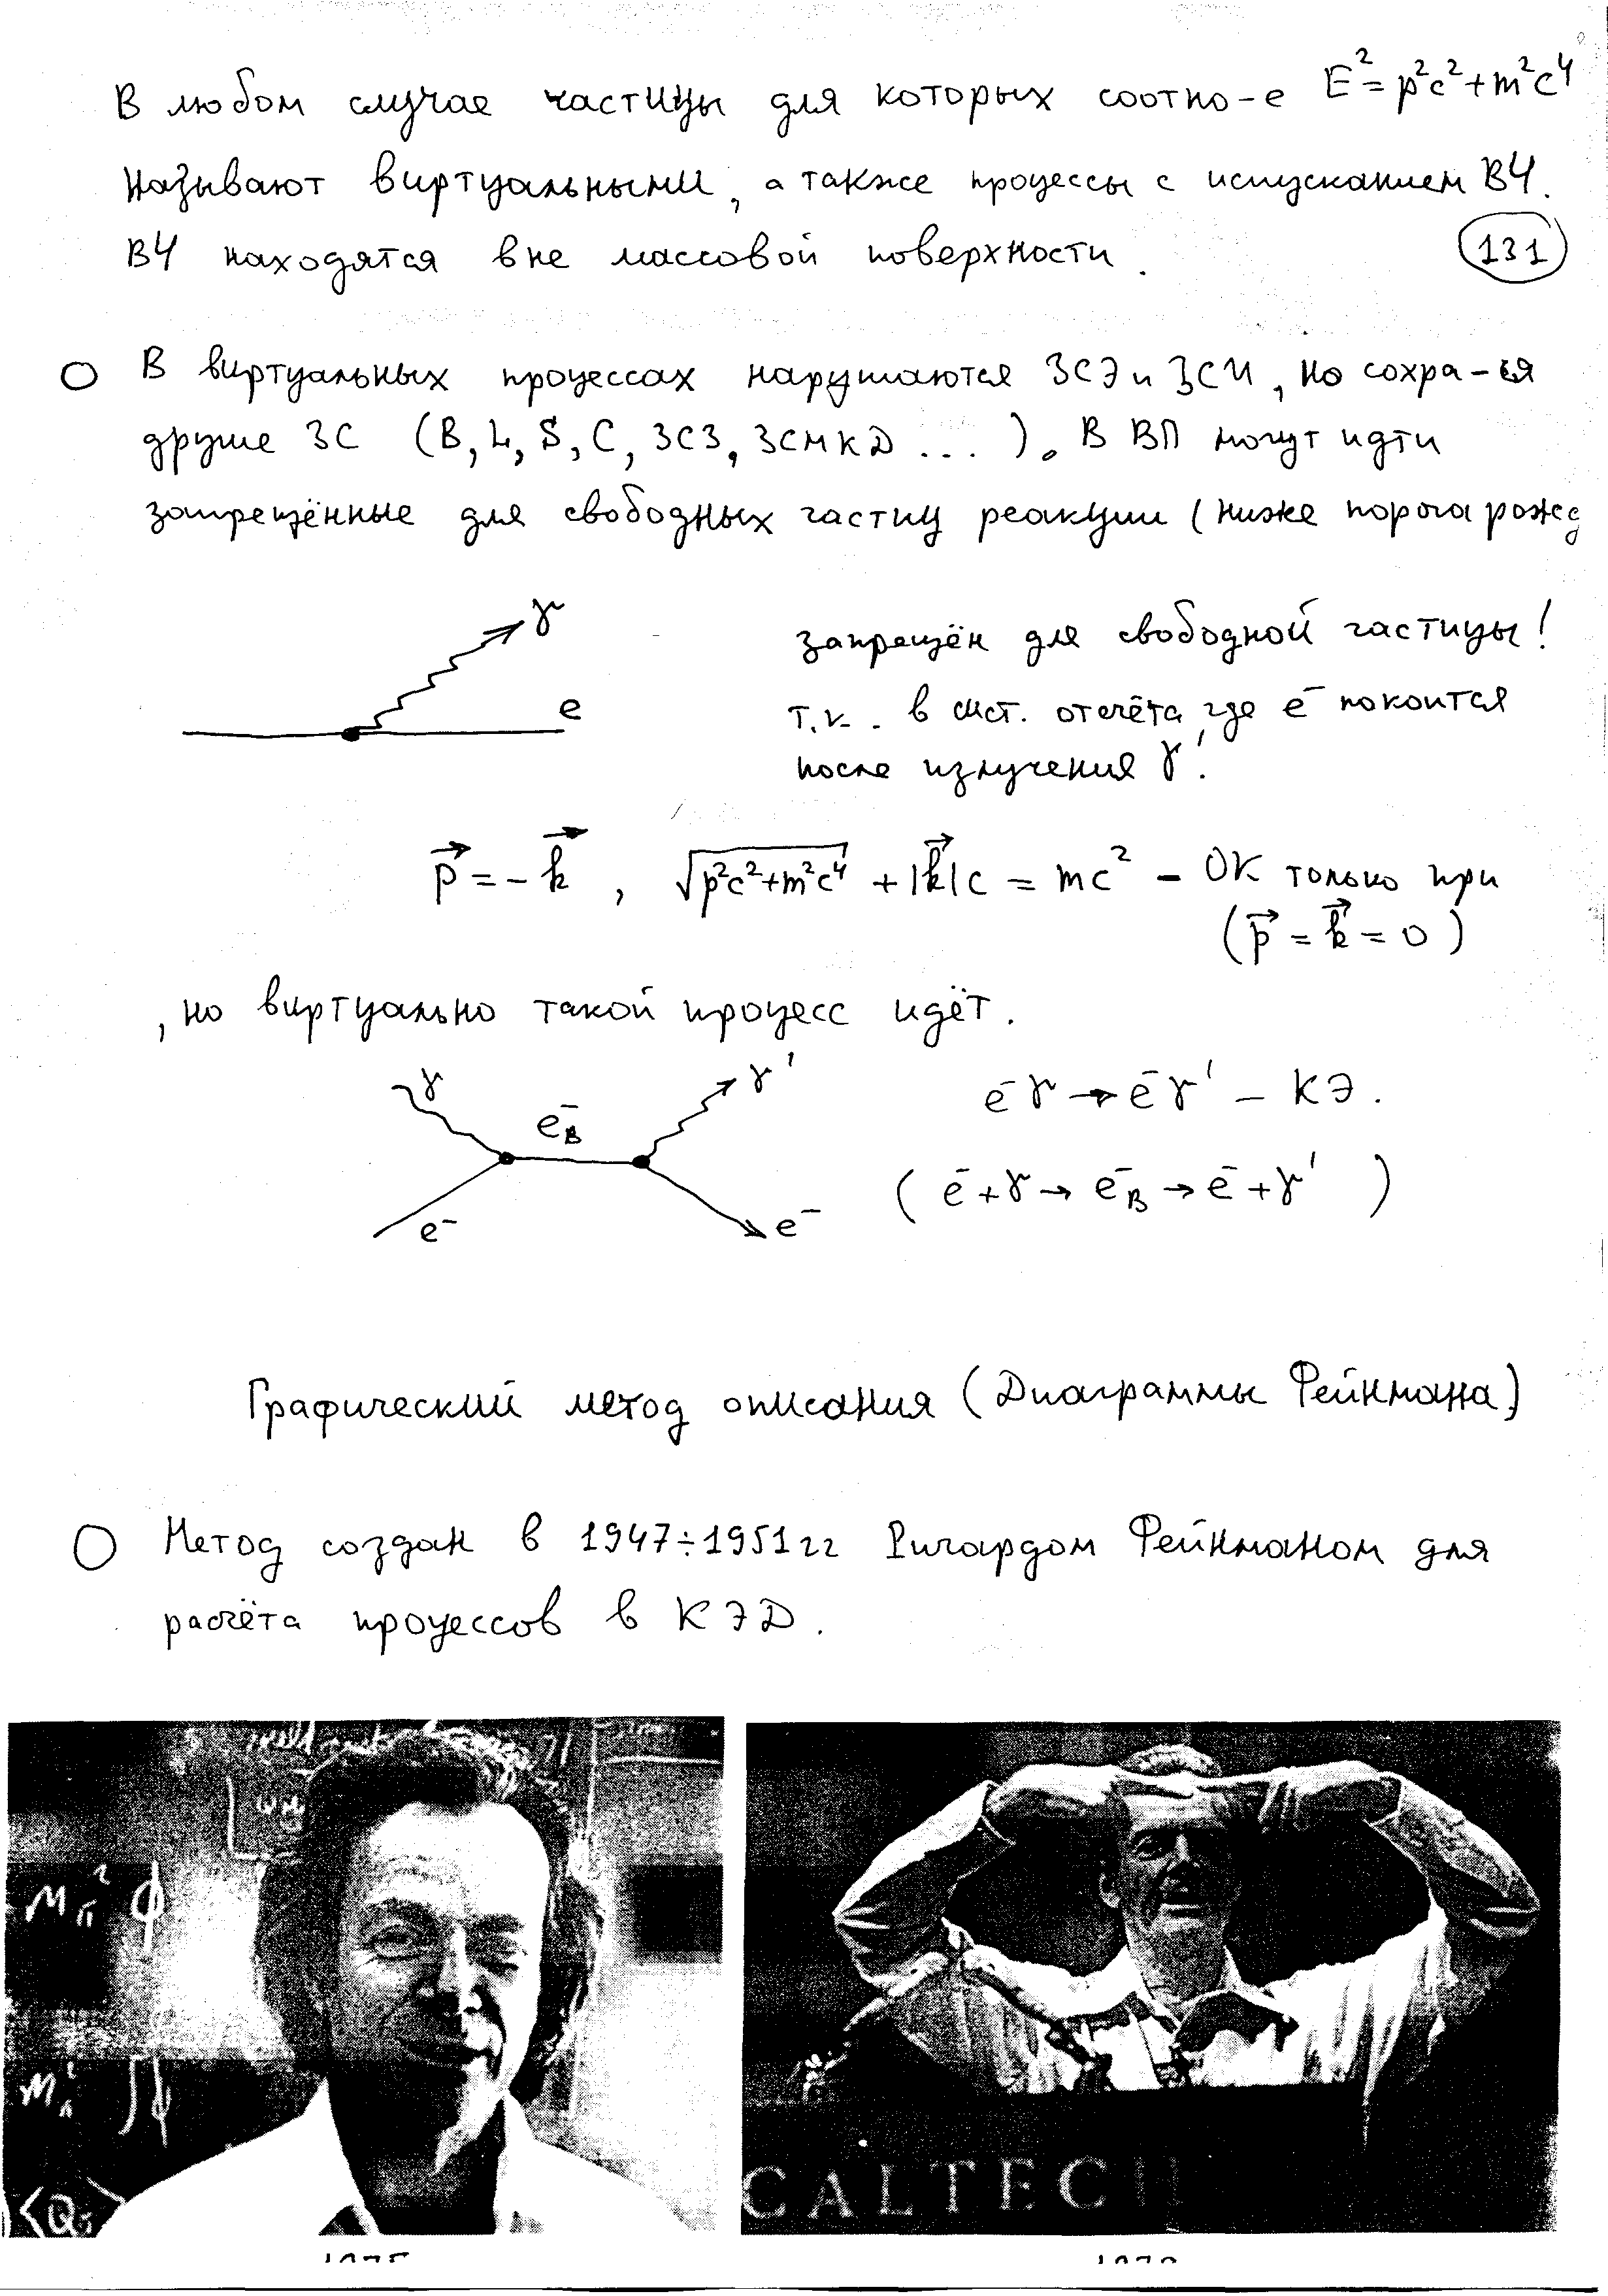 В любом случае частицы для которых соотно-е E²=p²c²+m²c⁴
называют виртуальными, а также процессы с испусканием ВЧ.
ВЧ находятся вне массовой поверхности.
131
В виртуальных процессах нарушаются ЗСЭ и ЗСИ, но сохра-ся
другие ЗС (B, L, S, C, ЗСЗ, ЗСМКД ...). В ВП могут идти
запрещённые для свободных частиц реакции (ниже порога рожд
γ
e
запрещён для свободной частицы!
т.к. в сист. отсчёта, где e⁻ покоится
после излучения γ'.
p⃗ = -k⃗, √(p²c²+m²c⁴) + |k⃗|c = mc² - ОК только при
(p⃗ = k⃗ = 0)
, но виртуально такой процесс идёт.
γ e⁻в γ'
e⁻ e⁻
e⁻γ → e⁻γ' - КЭ.
(e⁻+γ → e⁻в → e⁻+γ')
Графический метод описания (Диаграммы Фейнмана)
Метод создан в 1947÷1951гг Ричардом Фейнманом для
расчёта процессов в КЭД.
CALTECH